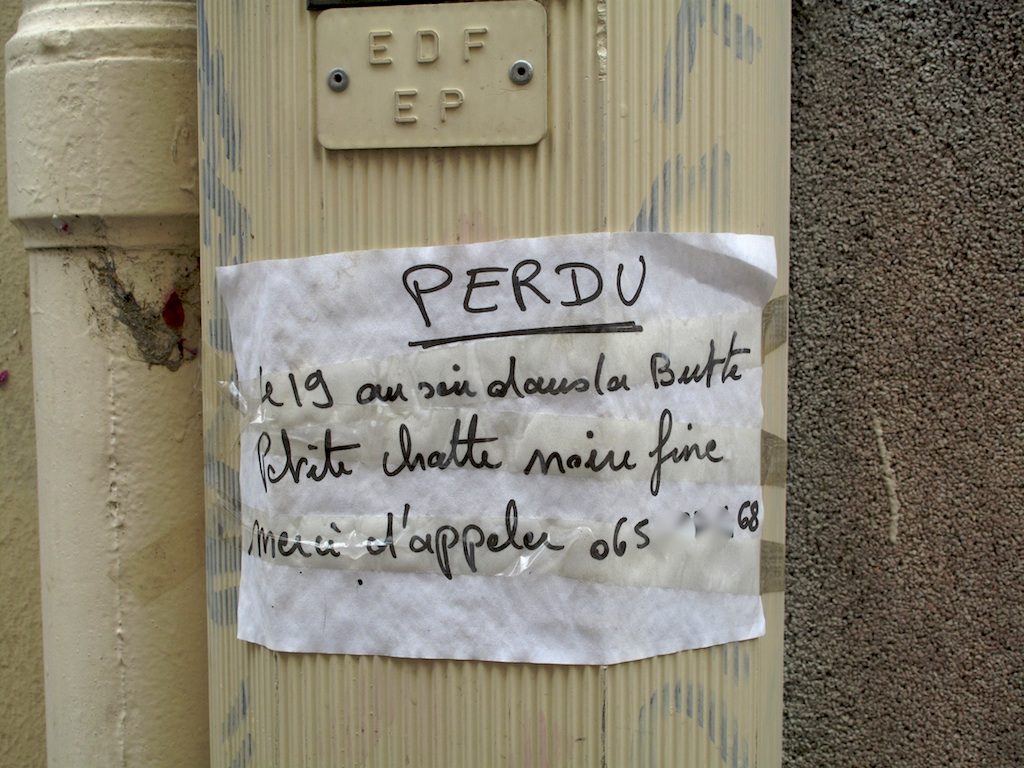 EDF
EP
PERDU
le 19 au soir dans la Butte
Petite chatte noire fine
merci d'appeler 065 68